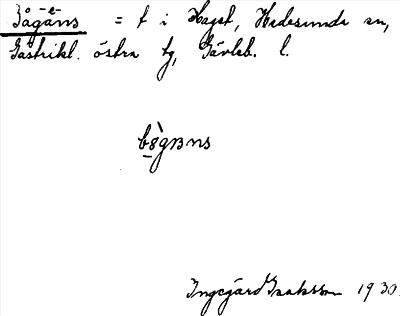 Bågäns = t i Hagst, Hedesunda sn,
Gästrikl. östra tg, Gävleb. l.
Ingegärd Isaksson 1930.